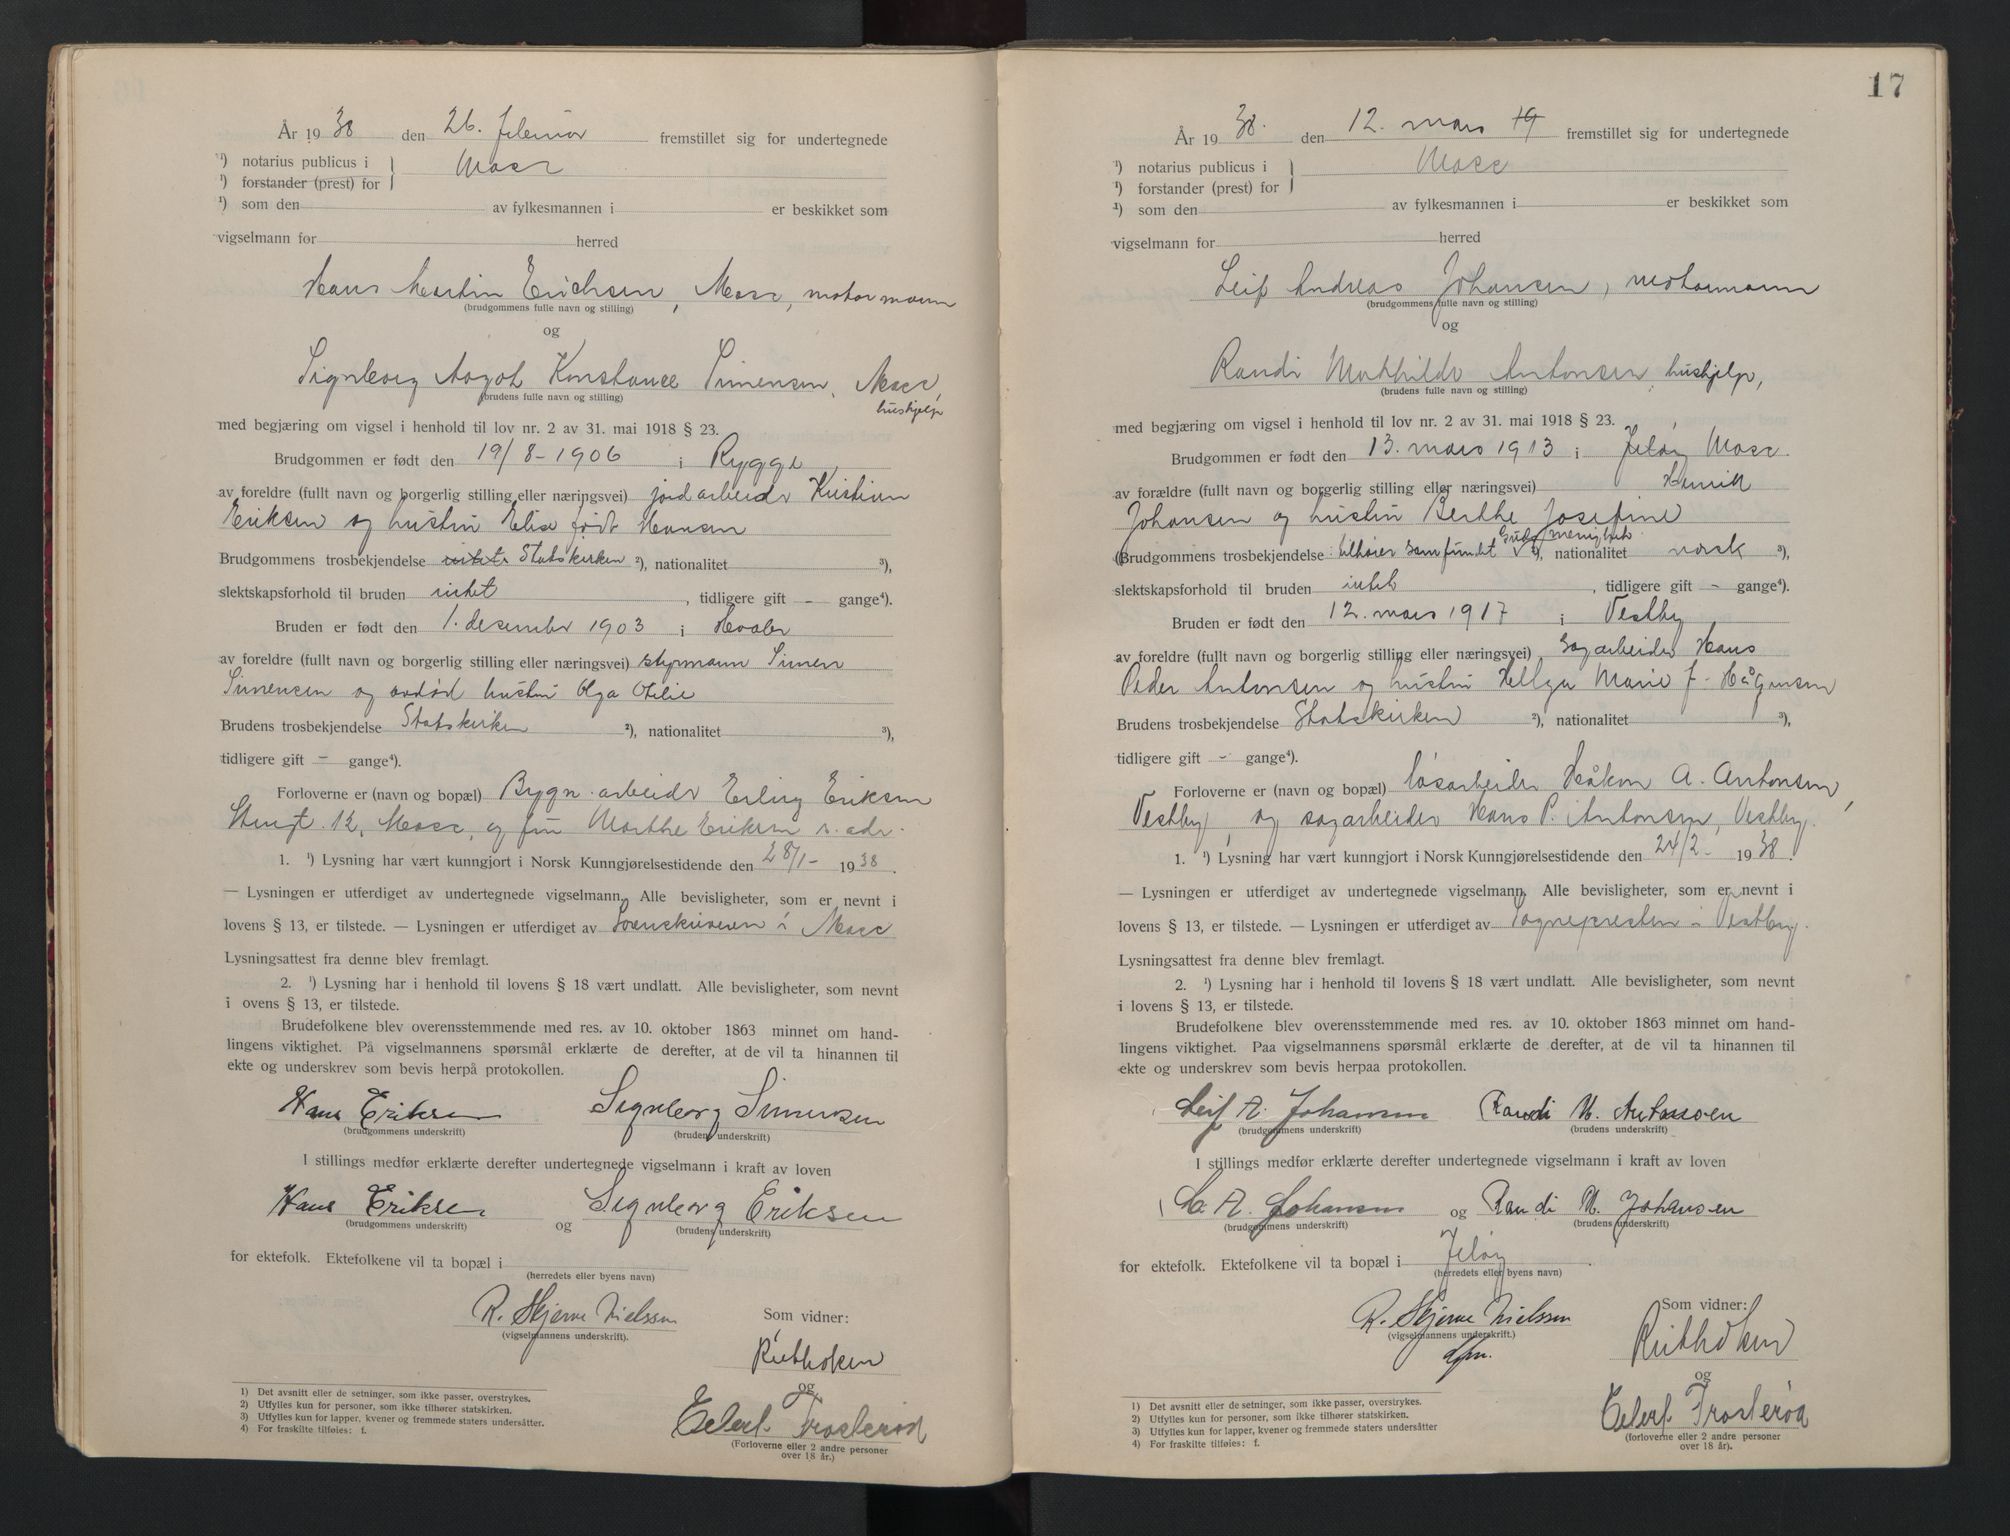 År 1938 den 26. februar fremstillet sig for undertegnede
¹) notarius publicus i } Moss
¹) forstander (prest) for
¹) som den av fylkesmannen i er beskikket som
vigselmann for herred
Hans Martin Erichsen, Moss, motormann
(brudgommens fulle navn og stilling)
og
Signborg Aagot Konstance Simensen, Moss,
(brudens fulle navn og stilling)
hushjelp
med begjæring om vigsel i henhold til lov nr. 2 av 31. mai 1918 § 23.
Brudgommen er født den 19/8-1906 i Rygge
av foreldre (fullt navn og borgerlig stilling eller næringsvei) jordarbeider Kristian
Eriksen og hustru Elise født Hansen
Brudgommens trosbekjendelse intet Statskirken ²), nationalitet ³),
slektskapsforhold til bruden intet , tidligere gift - gange⁴).
Bruden er født den 1. desember 1903 i Hvaler
av foreldre (fullt navn og borgerlig stilling eller næringsvei) styrmann Simen
Simensen og avdød hustru Olga Otilie
Brudens trosbekjendelse Statskirken ²), nationalitet ³),
tidligere gift - gange⁴).
Forloverne er (navn og bopæl) Bygn.arbeider Erling Eriksen
12, Moss, og fru Marthe Eriksen s. adr.
1. ¹) Lysning har vært kunngjort i Norsk Kunngjørelsestidende den 28/1- 1938.
— Lysningen er utferdiget av undertegnede vigselmann. Alle bevisligheter, som er nevnt i
lovens § 13, er tilstede. — Lysningen er utferdiget av Sorenskriveren i Moss
Lysningsattest fra denne blev fremlagt.
2. ¹) Lysning har i henhold til lovens § 18 vært undlatt. Alle bevisligheter, som nevnt
i ovens § 13, er tilstede.
Brudefolkene blev overensstemmende med res. av 10. oktober 1863 minnet om hand-
lingens viktighet. På vigselmannens spørsmål erklærte de derefter, at de vil ta hinannen til
ekte og underskrev som bevis herpå protokollen.
Hans Eriksen Signborg Simensen
(brudgommens underskrift) (brudens underskrift)
I stillings medfør erklærte derefter undertegnede vigselmann i kraft av loven
Hans Eriksen og Signborg Eriksen
(brudgommens underskrift) (brudens underskrift)
for ektefolk. Ektefolkene vil ta bopæl i
(herredets eller byens navn)
R. Skjerve Nielssen Som vidner:
(vigselmannens underskrift).
Ruth Oken
og
Edert Trosterød
(Forloverne eller 2 andre personer
over 18 år.)
1) Det avsnitt eller de setninger, som ikke passer, overstrykes.
2) Utfylles kun for personer, som ikke tilhører statskirken.
3) Utfylles kun for lapper, kvener og fremmede staters undersåtter.
4) For fraskilte tilføies: f.
17
År 1938. den 12. mars 19 fremstillet sig for undertegnede
¹) notarius publicus i } Moss
¹) forstander (prest) for
¹) som den av fylkesmannen i er beskikket som
vigselmann for herred
Leif Andreas Johansen, motormann
(brudgommens fulle navn og stilling)
og
Randi Mathilde Antonsen, hushjelp,
(brudens fulle navn og stilling)
med begjæring om vigsel i henhold til lov nr. 2 av 31. mai 1918 § 23.
Brudgommen er født den 13. mars 1913 i Jeløy Moss.
av forældre (fullt navn og borgerlig stilling eller næringsvei) Henrik
Johansen og hustru Berthe Josefine
Brudgommens trosbekjendelse: tilhører samfundet Guds menighet ²), nationalitet norsk ³),
slektskapsforhold til bruden intet , tidligere gift - gange⁴).
Bruden er født den 12. mars 1917 i Vestby
av foreldre (fullt navn og borgerlig stilling eller næringsvei) Sagarbeider Hans
Peder Antonsen og hustru Helga Marie f. Hågensen
Brudens trosbekjendelse Statskirken ²), nationalitet ³),
tidligere gift - gange⁴).
Forloverne er (navn og bopæl) løsarbeider Håkon A. Antonsen,
Vestby, og sagarbeider Hans P. Antonsen, Vestby.
1. ¹) Lysning har vært kunngjort i Norsk Kunngjørelsestidende den 24/2- 1938.
— Lysningen er utferdiget av undertegnede vigselmann. Alle bevisligheter, som er nevnt i
lovens § 13, er tilstede. — Lysningen er utferdiget av Sognepresten i Vestby.
Lysningsattest fra denne blev fremlagt.
2. ¹) Lysning har i henhold til lovens § 18 vært undlatt. Alle bevisligheter, som nevnt
i lovens § 13, er tilstede.
Brudefolkene blev overensstemmende med res. av 10. oktober 1863 minnet om hand-
lingens viktighet. Paa vigselmannens spørsmål erklærte de derefter, at de vil ta hinannen til
ekte og underskrev som bevis herpaa protokollen.
Leif A. Johansen Randi M. Antonsen
(brudgommens underskrift) (brudens underskrift)
I stillings medfør erklærte derefter undertegnede vigselmann i kraft av loven
L. A. Johansen og Randi M. Johansen
(brudgommens underskrift) (brudens underskrift)
for ektefolk. Ektefolkene vil ta bopæl i Jeløy .
(herredets eller byens navn)
R. Skjerve Nielssen Som vidner:
(vigselmannens underskrift.)
dfm.
Ruth Oken
og
Edert Trosterød
(forloverne eller 2 andre personer
over 18 år).
1) Det avsnitt eller de setninger, som ikke passer, overstrykes.
2) Utfylles kun for personer, som ikke tilhører statskirken.
3) Utfylles kun for lapper, kvener og fremmede staters undersåtter
4) For fraskilte tilføies: f.